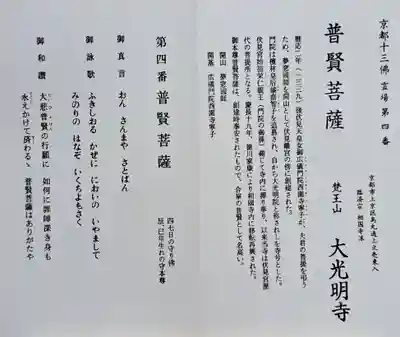 京都十三佛霊場第四番
普賢菩薩
京都市上京区烏丸通上立売東入
臨済宗 相国寺派
梵王山 大光明寺
暦応二年(一三三九)後伏見天皇女御広義門院西園寺寧子が、夫君の菩提を弔う
ため、夢窓国師を開山として伏見離宮の傍に創建された。
門院は檀林皇后嘉智子を追慕され、自から大光明院と称されしを寺号とした。
伏見宮始祖栄仁親王(門院の御孫)薨じて寺内に葬り奉り、以来当寺は伏見宮歴
代の菩提所となる。慶長十九年、徳川家康により相国寺内に移転再興された。
御本尊普賢菩薩は、創建時奉安されたもので、合掌の普賢として名高い。
開山 夢窓国師
開基 広義門院西園寺寧子
第四番 普賢菩薩
四七日の守り佛
辰、巳年生れの守本尊
御真言 おん さんまや さとばん
御詠歌 ふきしおる かぜに においの いやまして
みのりの はなぞ いくちよもさく
御和讃 大悲普賢の行願に 如何に罪障深き身も
永えかけて済わるゝ 普賢菩薩はありがたや